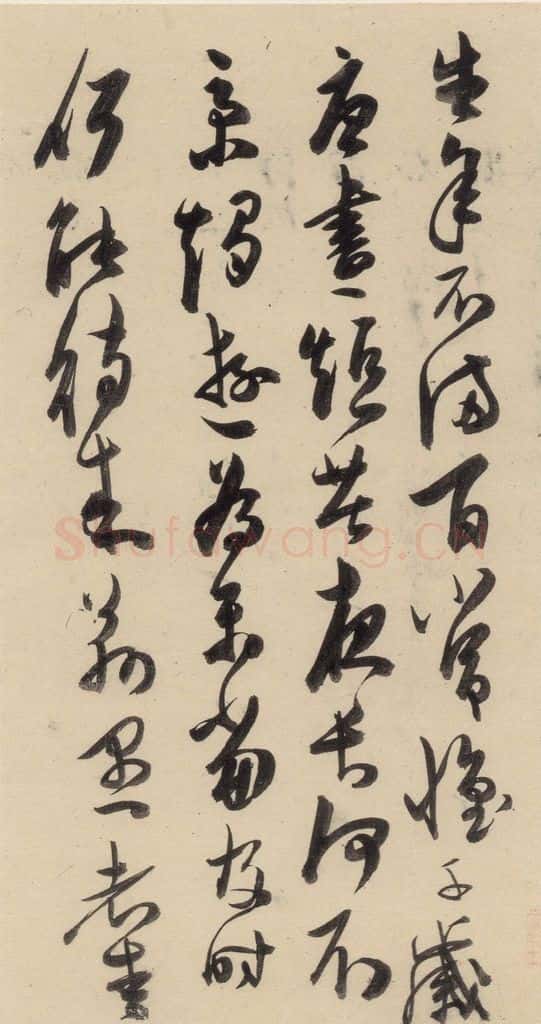 生年不滿百常懷千歲
憂晝短苦夜長何不
秉燭遊為樂當及時
何能待來茲愚者愛
Shufawang.CN